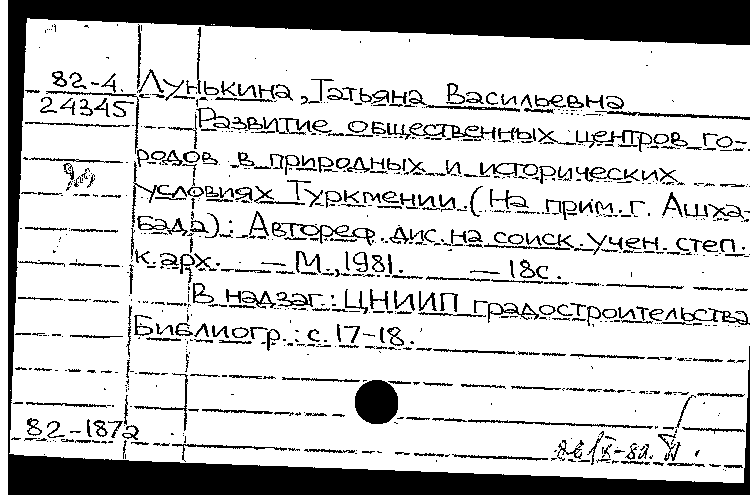 82-4. Лунькина, Татьяна Васильевна
24345 Развитие общественных центров го-
родов в природных и исторических
условиях Туркмении. (На прим. г. Ашха-
бада): Автореф. дис. на соиск. учен. степ.
к. арх. — М., 1981. — 18с.
В надзаг.: ЦНИИП градостроительства
Библиогр.: с. 17-18.
82-187а